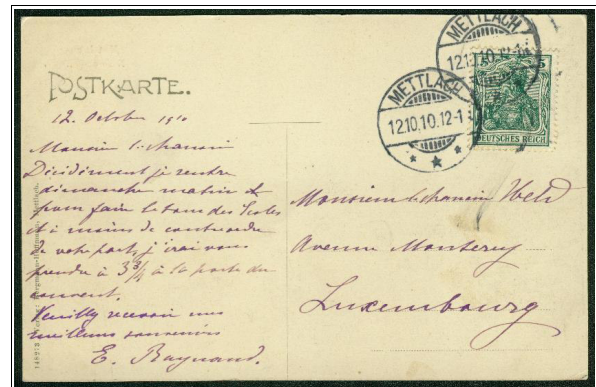 POSTKARTE.
METTLACH
12.10.10.12-1
METTLACH
12.10.10.12-1
DEUTSCHES REICH
12. Octobre 1910
Monsieur le chanoine
Décidément je rentre
dimanche matin et
pour faire le tour des Écoles
et à moins de contreordre
de votre part, j'irai vous
prendre à 3 3/4 à la porte du
couvent.
Veuillez recevoir mes
meilleurs souvenirs
E. Baynand.
Monsieur le chanoine Weld
Avenue Monterey
Luxembourg